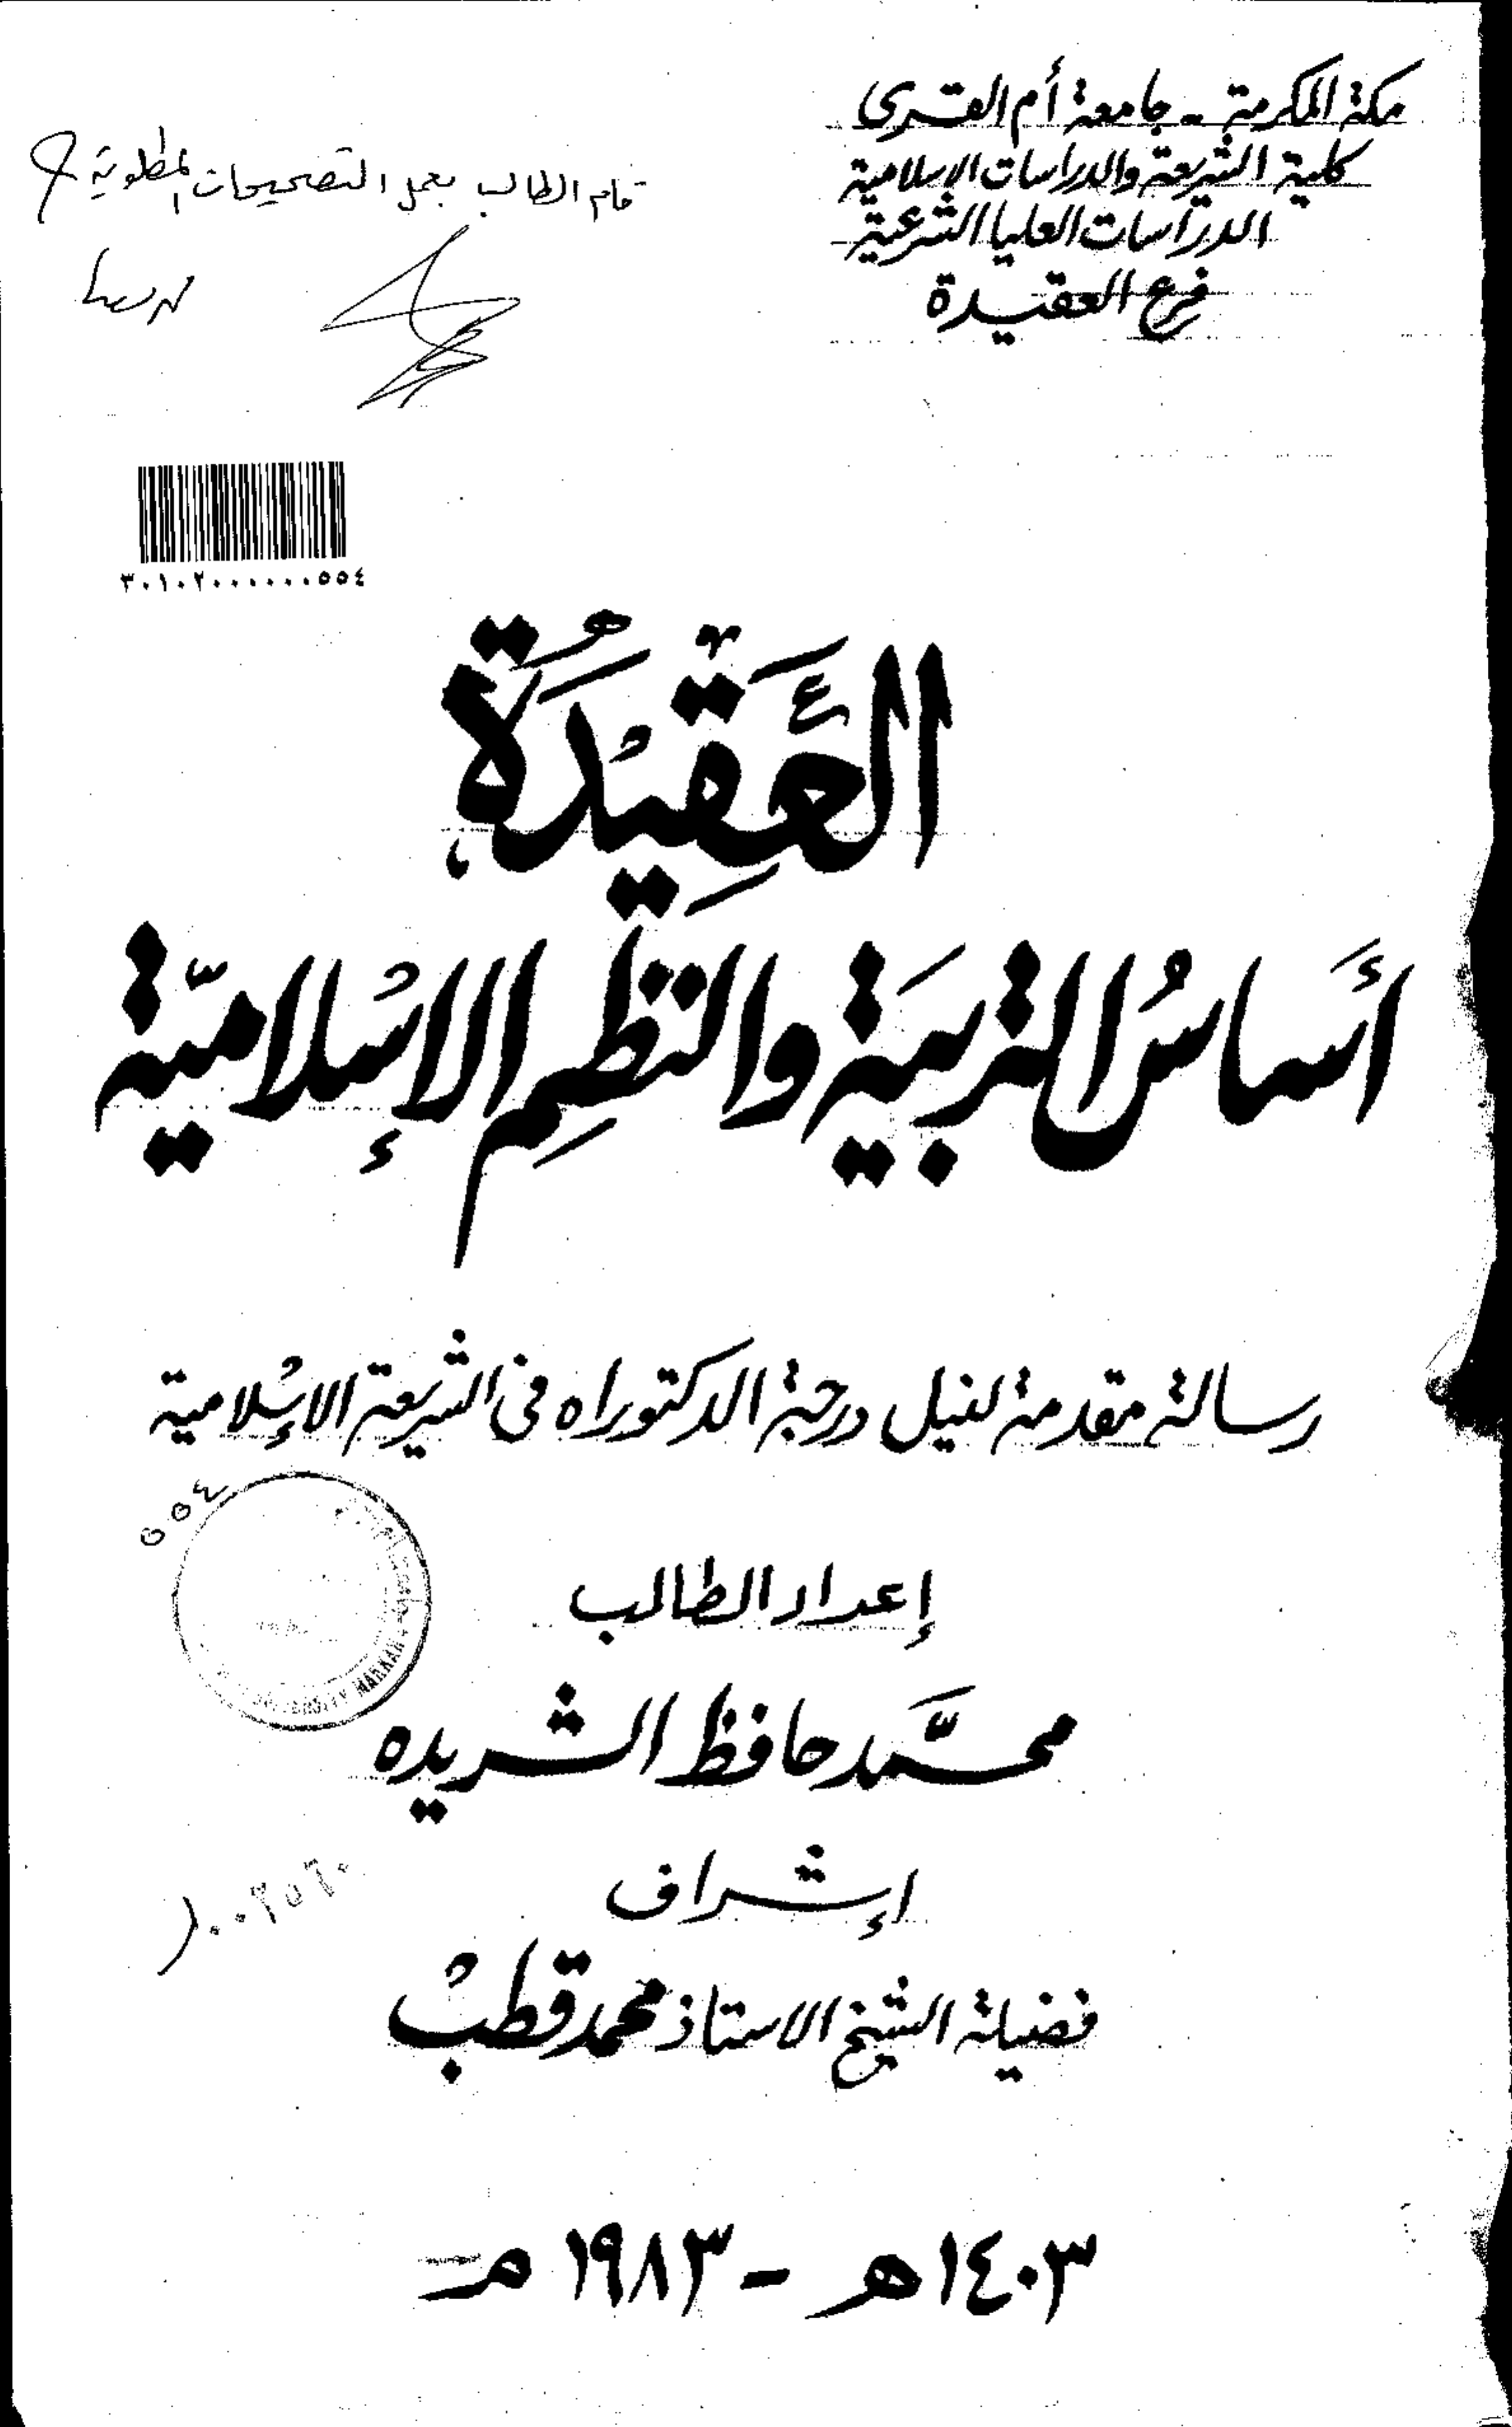 مكة المكرمة - جامعة أم القرى
كلية الشريعة والدراسات الإسلامية
الدراسات العليا الشرعية
فرع العقيدة
قام الطالب بعمل التصحيحات المطلوبة
٣٠١٠٢٠٠٠٠٠٠٥٥٤
العَقِيْدَةُ
أَساسُ التربيَة والنظمِ الإسْلاميّة
رسالة مقدمة لنيل درجة الدكتوراه في الشريعة الإسْلامية
٥٥٤
إعداد الطالب
محمَّد حافظ الشريده
إشراف
فضيلة الشيخ الاستاذ محمد قطبْ
١٤٠٣ هـ - ١٩٨٣ م